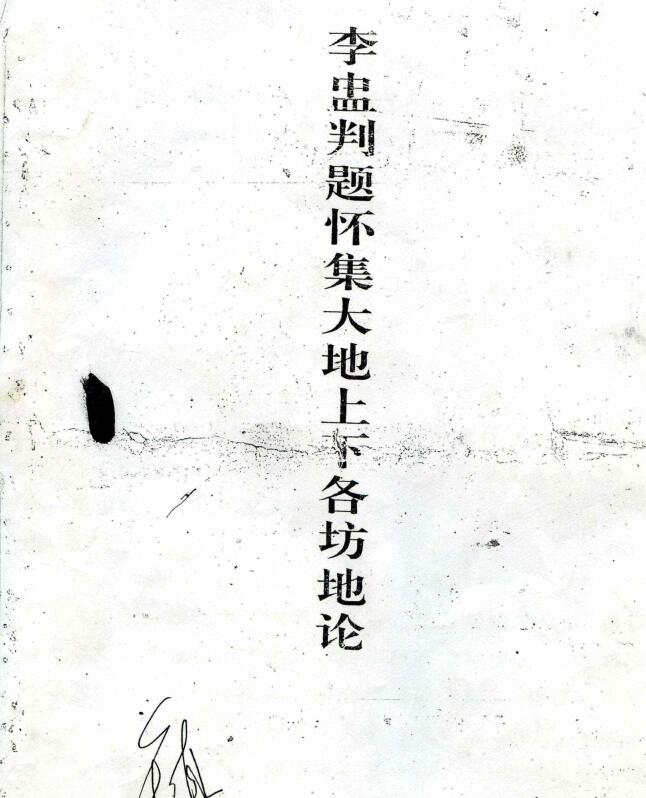 李盅判题怀集大地上下各坊地论